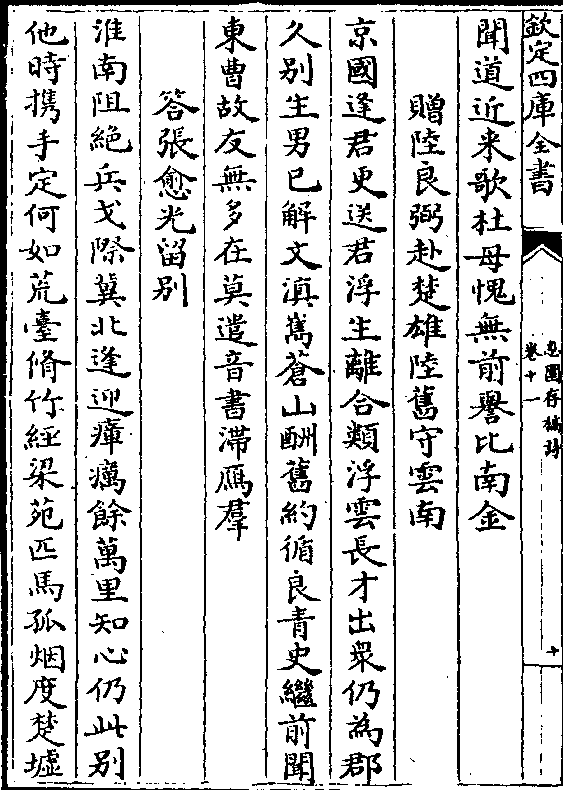 欽定四庫全書
息園存稿詩
卷十一
十
聞道近来歌杜母愧無前譽比南金
贈陸良弼赴楚雄陸舊守雲南
京國逢君更送君浮生離合類浮雲長才出衆仍為郡
久别生男已解文滇嶲蒼山酬舊約循良青史繼前聞
東曹故友無多在莫遣音書滯鴈羣
答張愈光留别
淮南阻絶兵戈際冀北逢迎瘴癘餘萬里知心仍此别
他時携手定何如荒臺脩竹經梁苑匹馬孤烟度楚墟